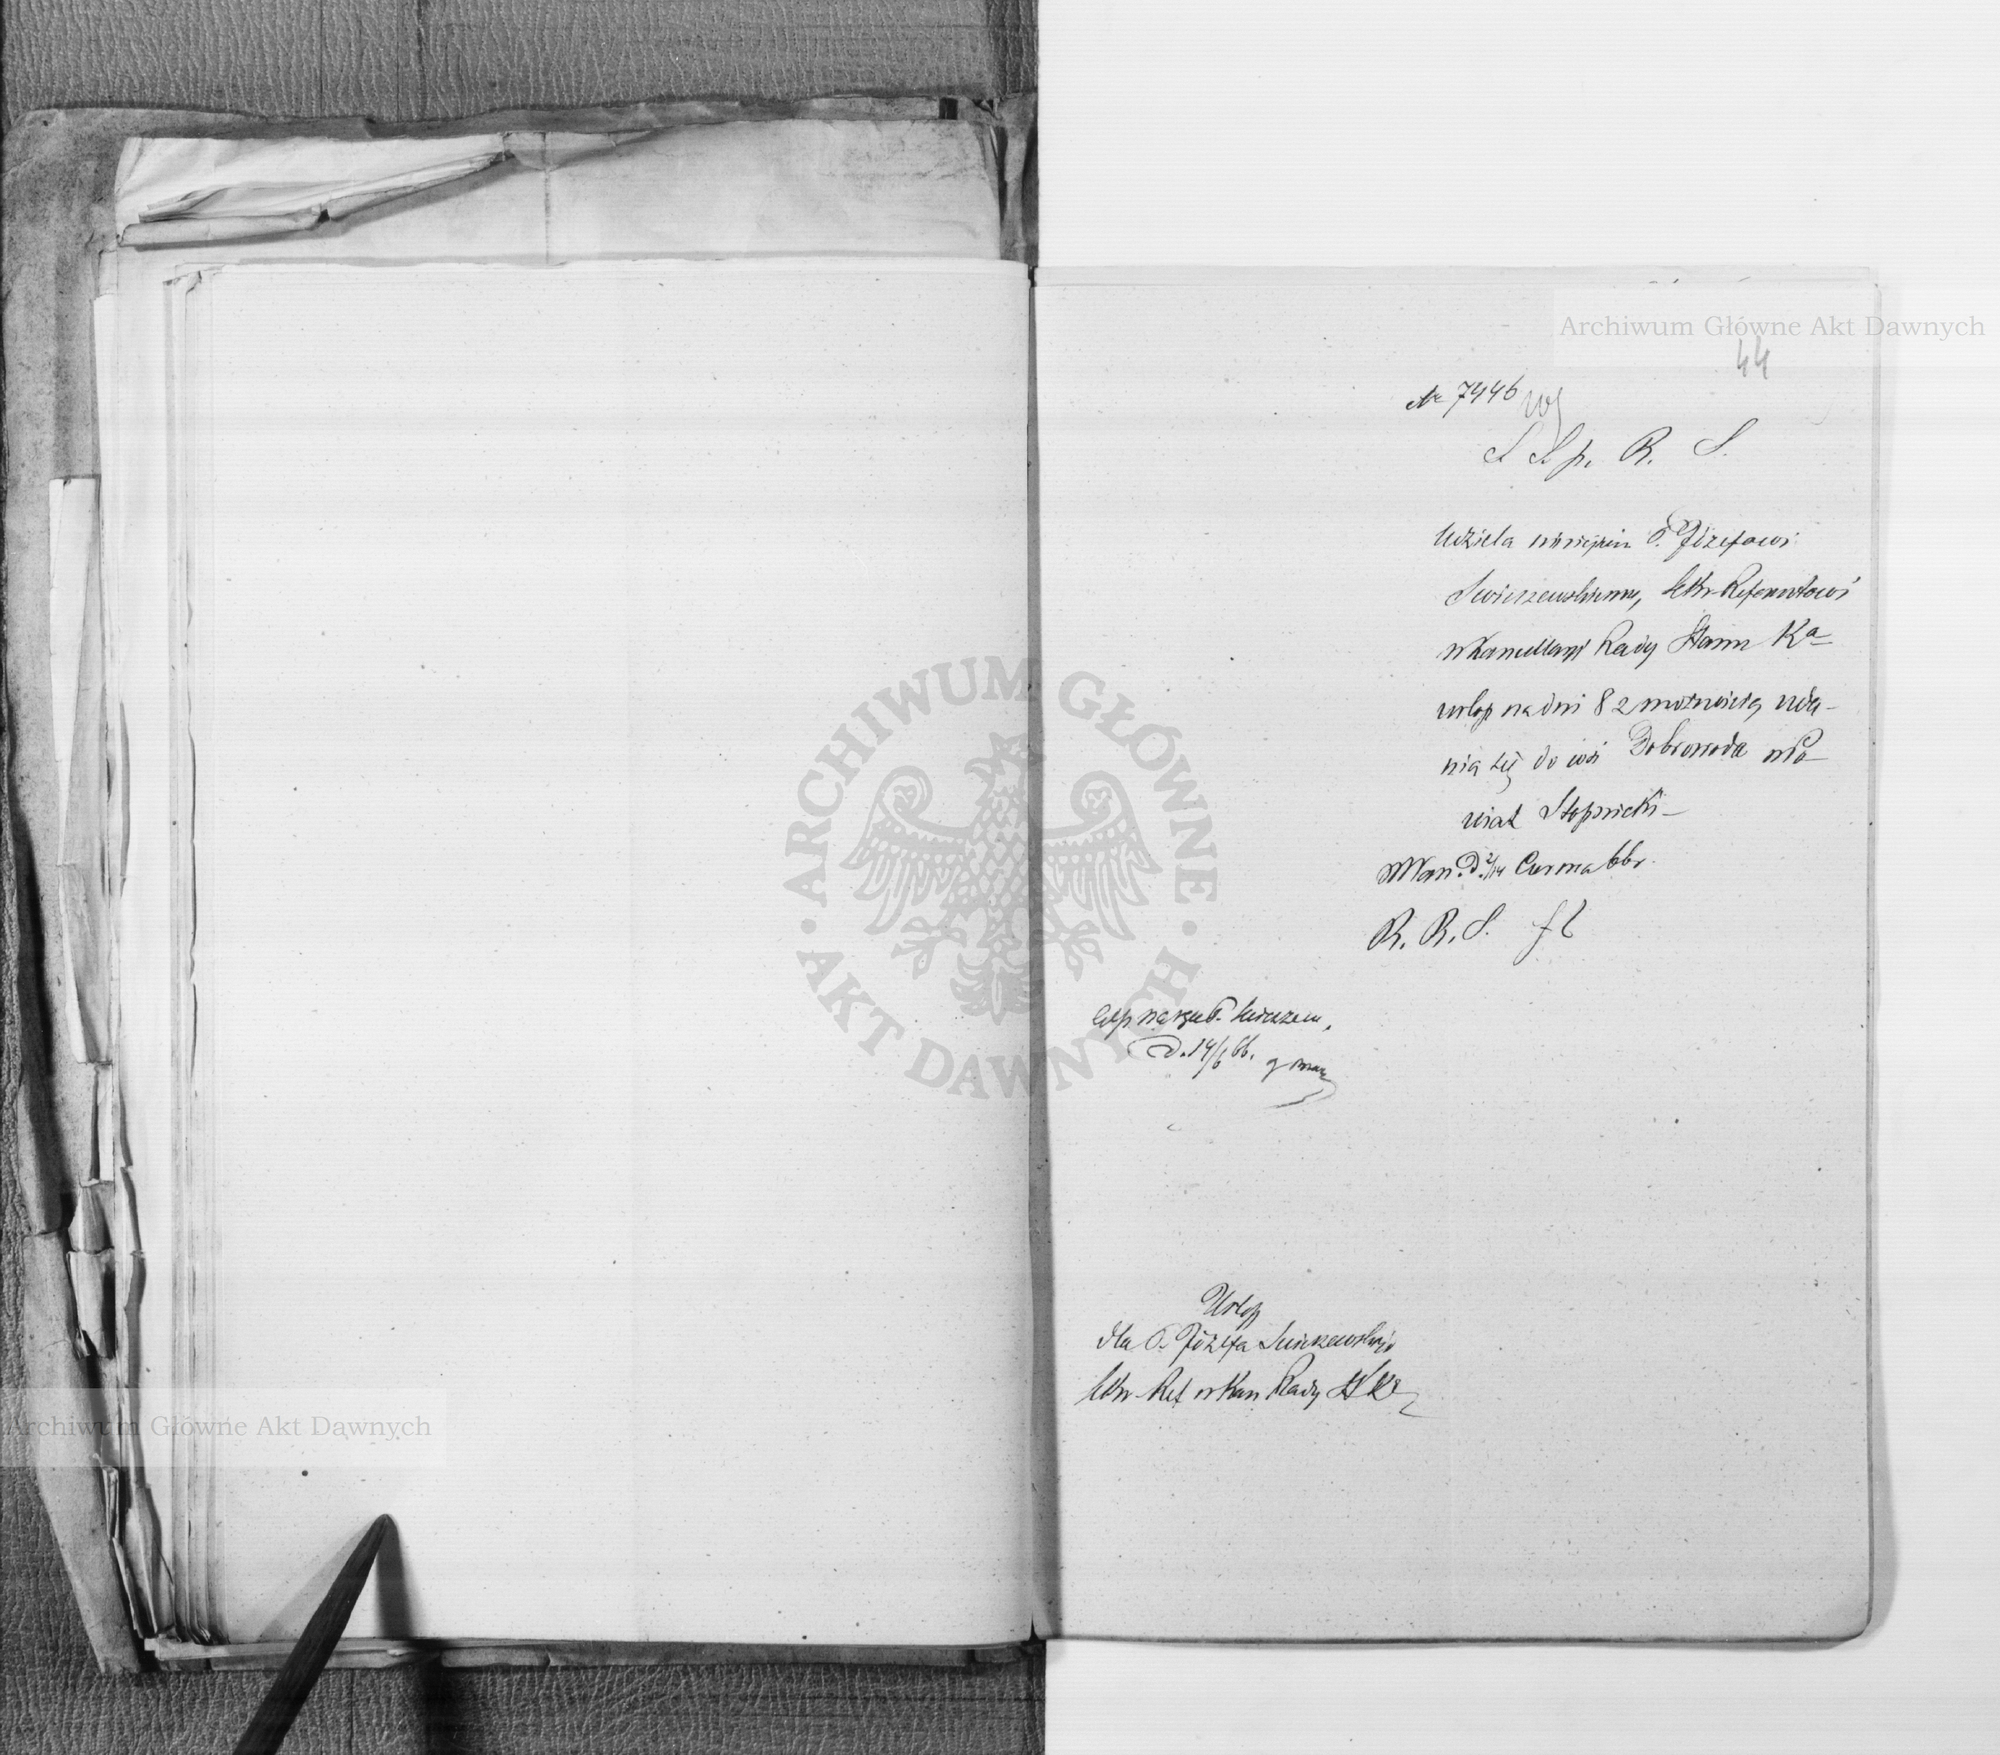 Archiwum Główne Akt Dawnych
44
№ 7446
S S p. R. S.
Udziela niniejszem P. Józefowi
Swieszewskiemu, Sekr-Referentowi
w Kancellaryi Rady Stanu Ka-
urlop na dni 8 z możnością uda-
nia się do wsi Dobrowoda w Po-
wiat Stopnicki-
w Warn. d. 2/14 Czerwca 66 r.
R. R. S.
d. 14/6 66.
Urlop
dla P. Józefa Swieszewskiego
Sekr-Ref w Kan Rady
ARCHIWUM GŁÓWNE
AKT DAWNYCH
Archiwum Główne Akt Dawnych